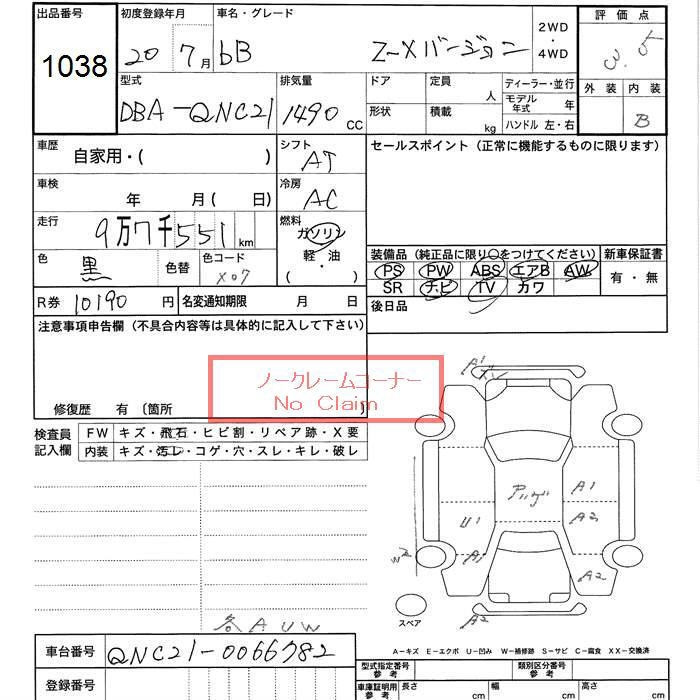 出品番号 初度登録年月 車名・グレード 2WD・4WD 評価点
1038 20 7月 bB Z-Xバージョン 3.5
型式 排気量 ドア 定員 人 ディーラー・並行 外装 内装
DBA-QNC21 1490 CC 形状 積載 kg モデル年式 年 B
ハンドル 左・右
車歴 自家用・( ) シフト AT セールスポイント (正常に機能するものに限ります)
車検 年 月 ( 日) 冷房 AC
走行 9万7千551 km 燃料 ガソリン
軽・油
( )
色 黒 色替 色コード X07
装備品 (純正品に限り○をつけてください) 新車保証書
PS PW ABS エアB AW 有・無
SR ナビ TV カワ
R券 10190 円 名変通知期限 月 日 後日品
注意事項申告欄 (不具合内容等は具体的に記入して下さい)
ノークレームコーナー
No Claim
修復歴 有 〔箇所 〕
検査員記入欄 FW キズ・飛石・ヒビ割・リペア跡・X要
内装 キズ・汚レ・コゲ・穴・スレ・キレ・破レ
A1
A1
U1 A2
A1
A2
スペア A2
各AUW
A-キズ E-エクボ U-凹み W-補修跡 S-サビ C-腐食 XX-交換済
車台番号 QNC21-0066782
型式指定番号 参考 類別区分番号 参考
登録番号 車庫証明用 参考 長さ cm 幅 cm 高さ cm